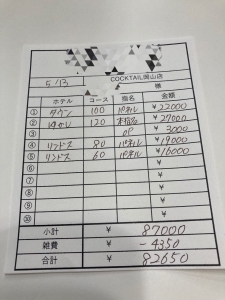 COCKTAIL岡山店
5/13 様
ホテル コース 指名 金額
① タウン 100 パネル ¥22000
② 120 本指名 ¥27000
③ OP ¥3000
④ リンドス 80 パネル ¥19000
⑤ リンドス 60 パネル ¥16000
⑥ ¥
⑦ ¥
⑧ ¥
⑨ ¥
⑩ ¥
小計 ¥ 87000
雑費 ¥ -4350
合計 ¥ 82650